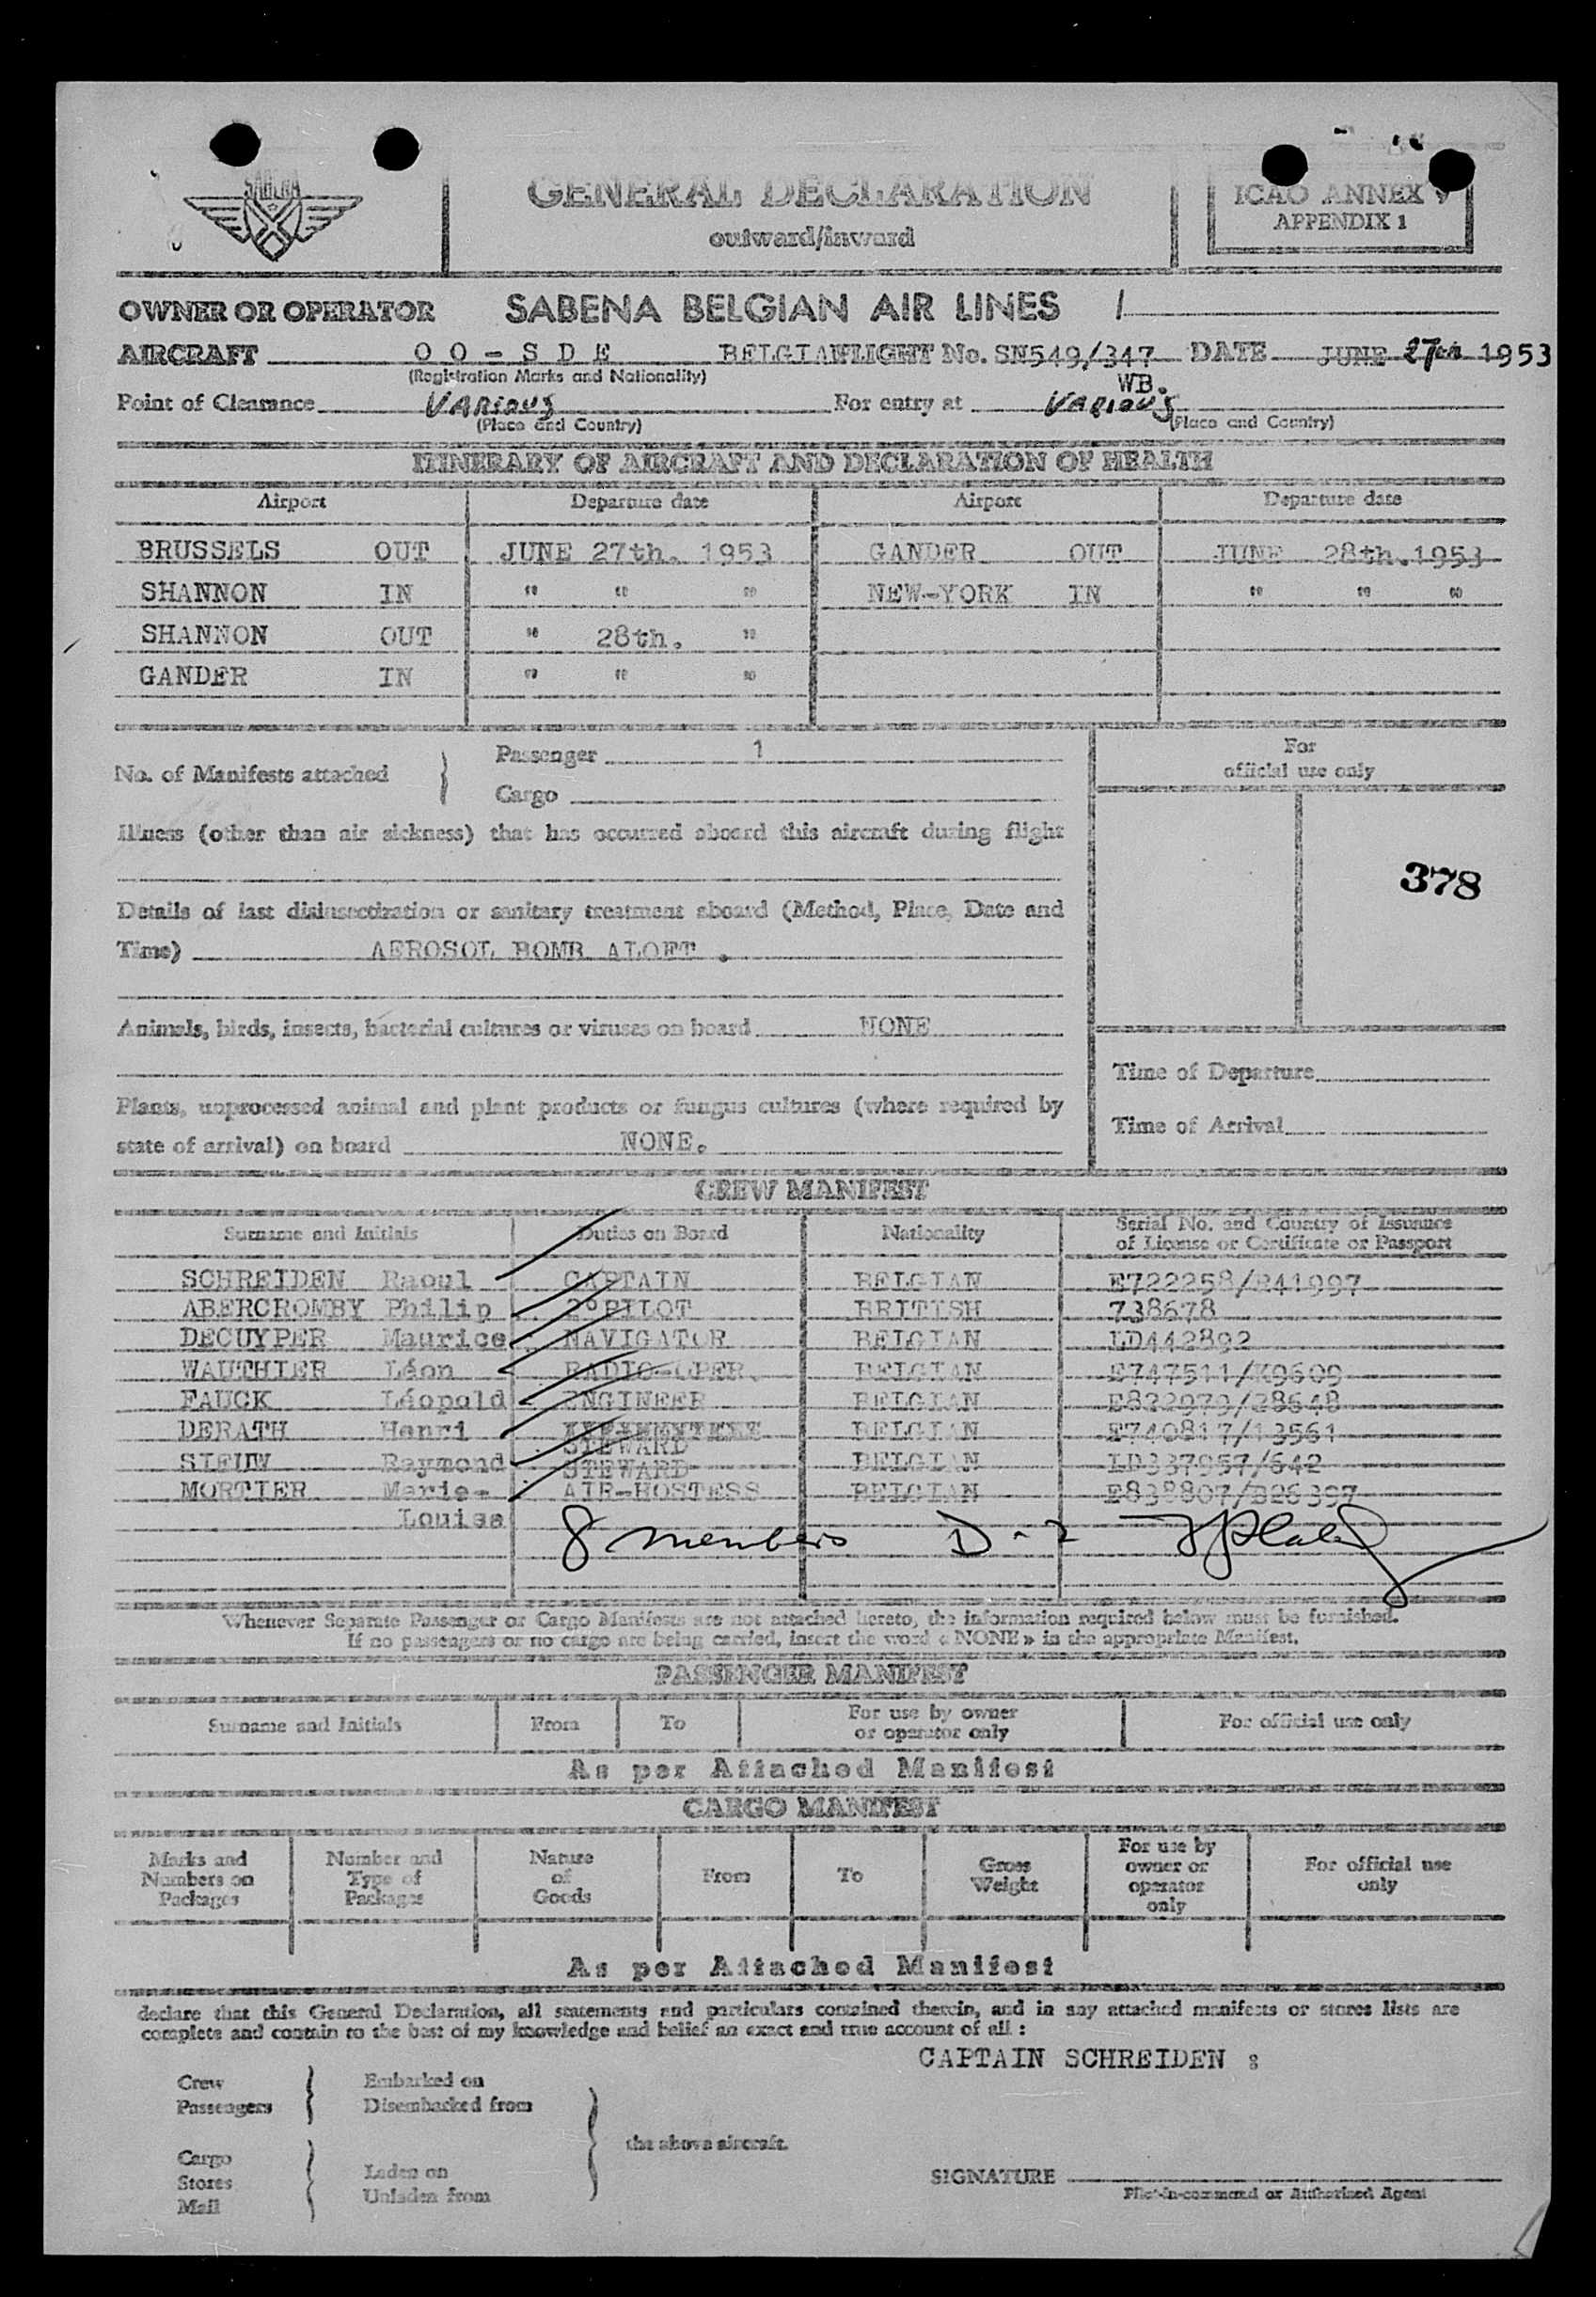 SABENA
GENERAL DECLARATION
outward/inward
ICAO ANNEX 9
APPENDIX 1
OWNER OR OPERATOR SABENA BELGIAN AIR LINES
AIRCRAFT OO-SDE BELGIAN FLIGHT No. SN549/347 DATE JUNE 27th 1953
(Registration Marks and Nationality)
WB.
Point of Clearance VARIOUS For entry at VARIOUS
(Place and Country) (Place and Country)
ITINERARY OF AIRCRAFT AND DECLARATION OF HEALTH
Airport Departure date Airport Departure date
BRUSSELS OUT JUNE 27th. 1953 GANDER OUT JUNE 28th.1953
SHANNON IN " " " NEW-YORK IN " " "
SHANNON OUT " 28th. "
GANDER IN " " "
No. of Manifests attached } Passenger 1
Cargo
For
official use only
Illness (other than air sickness) that has occurred aboard this aircraft during flight
378
Details of last disinsectization or sanitary treatment aboard (Method, Place, Date and
Time) AEROSOL BOMB ALOFT .
Animals, birds, insects, bacterial cultures or viruses on board NONE
Time of Departure
Plants, unprocessed animal and plant products or fungus cultures (where required by
state of arrival) on board NONE.
Time of Arrival
CREW MANIFEST
Surname and Initials Duties on Board Nationality Serial No. and Country of Issuance
of License or Certificate or Passport
SCHREIDEN Raoul CAPTAIN BELGIAN E722258/R41997
ABERCROMBY Philip 2°PILOT BRITISH 738678
DECUYPER Maurice NAVIGATOR BELGIAN LD442892
WAUTHIER Léon RADIO-OPER. BELGIAN E747511/K9609
FAUCK Léopold ENGINEER BELGIAN E822979/28648
DERATH Henri STEWARD BELGIAN E740817/13561
Raymond STEWARD BELGIAN LD337957/642
MORTIER Marie- AIR-HOSTESS BELGIAN E838807/B26397
Louise
8 members D-2
Whenever Separate Passenger or Cargo Manifests are not attached hereto, the information required below must be furnished.
If no passengers or no cargo are being carried, insert the word « NONE » in the appropriate Manifest.
PASSENGER MANIFEST
Surname and Initials From To For use by owner
or operator only For official use only
As per Attached Manifest
CARGO MANIFEST
Marks and
Numbers on
Packages
Number and
Type of
Packages
Nature
of
Goods
From
To
Gross
Weight
For use by
owner or
operator
only
For official use
only
As per Attached Manifest
declare that this General Declaration, all statements and particulars contained therein, and in any attached manifests or stores lists are
complete and contain to the best of my knowledge and belief an exact and true account of all :
CAPTAIN SCHREIDEN :
Crew
Passengers
Embarked on
Disembarked from
the above aircraft.
Cargo
Stores
Mail
Laden on
Unladen from
SIGNATURE
Pilot-in-command or Authorized Agent